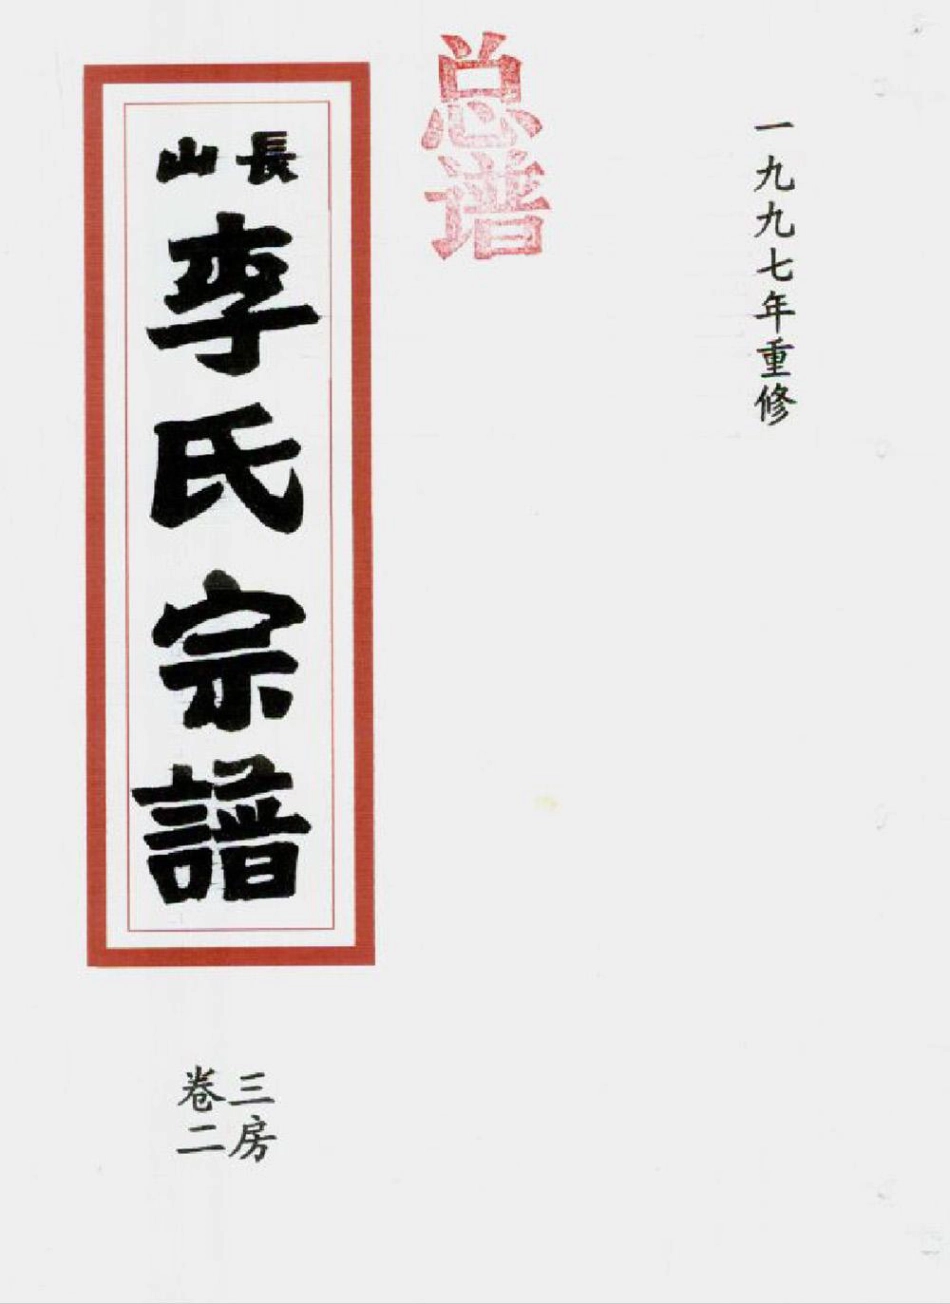 一九九七年重修
总谱
長山
李氏宗譜
三房
卷二